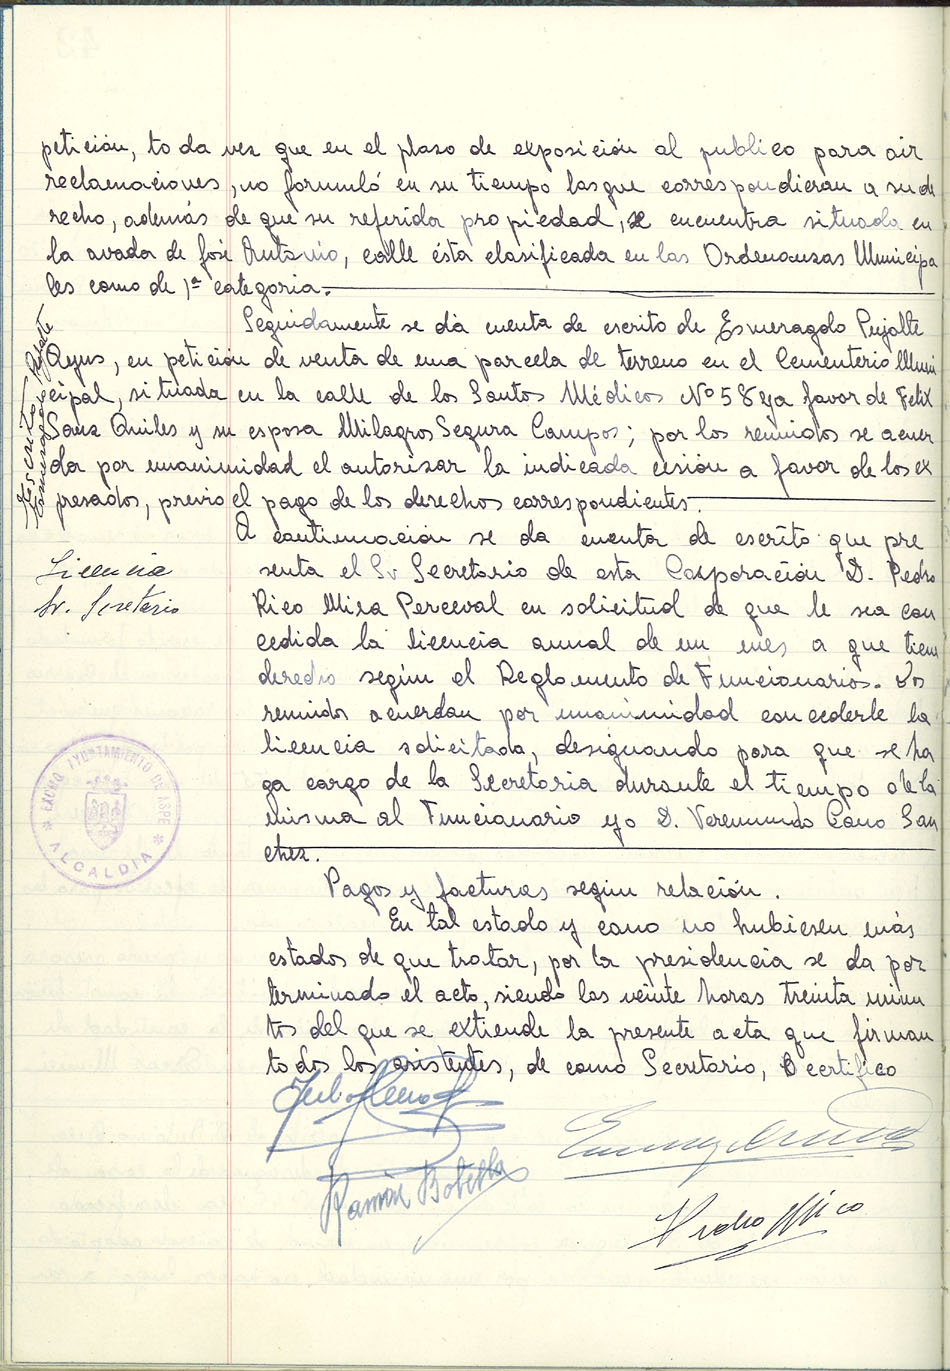 petición, toda vez que en el plazo de exposición al publico para oir
reclamaciones, no formuló en su tiempo las que correspondieran a su de
recho, además de que su referida propiedad, se encuentra situada en
la avada de José Antonio, calle ésta clasificada en las Ordenanzas Municipa
les como de 1ª categoria.
Escrito
Esmeragdo Pujalte
Seguidamente se dá cuenta de escrito de Esmeragdo Pujalte
Ayus, en petición de venta de una parcela de terreno en el Cementerio Muni
cipal, situada en la calle de los Santos Médicos Nº 58 y a favor de Felix
Sanz Quiles y su esposa Milagros Segura Campos; por los reunidos se acuer
da por unanimidad el autorizar la indicada cesión a favor de los ex
presados, previo el pago de los derechos correspondientes.
Licencia
Sr. Secretario
A continuación se da cuenta de escrito que pre
senta el Sr Secretario de esta Corporación D. Pedro
Rico Mira Perceval en solicitud de que le sea con
cedida la licencia anual de un mes a que tiene
derecho según el Reglamento de Funcionarios. Los
reunidos acuerdan por unanimidad concederle la
licencia solicitada, designando para que se ha
ga cargo de la Secretaria durante el tiempo de la
misma al Funcionario yo D. Veremundo Cano San
chez.
EXCMO. AYUNTAMIENTO DE ASPE
* ALCALDIA *
Pagos y facturas según relación.
En tal estado y como no hubiesen más
estados de que tratar, por la presidencia se da por
terminado el acto, siendo las veinte horas treinta minu
tos del que se extiende la presente acta que firman
todos los asistentes, de como Secretario, Certifico
Ramón Botella
Pedro Rico